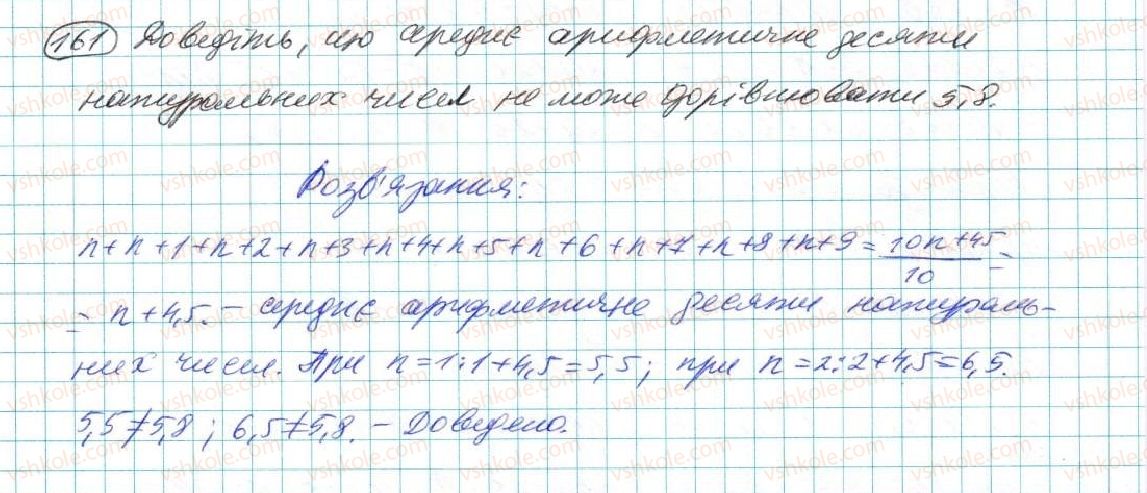 161 Доведіть, що середнє арифметичне десяти
натуральних чисел не може дорівнювати 5,8.
Розв'язання:
n+n+1+n+2+n+3+n+4+n+5+n+6+n+7+n+8+n+9=\frac{10n+45}{10}=
=n+4,5.– середнє арифметичне десяти натураль-
них чисел. При n=1:1+4,5=5,5; при n=2:2+4,5=6,5.
5,5≠5,8; 6,5≠5,8. – Доведено.